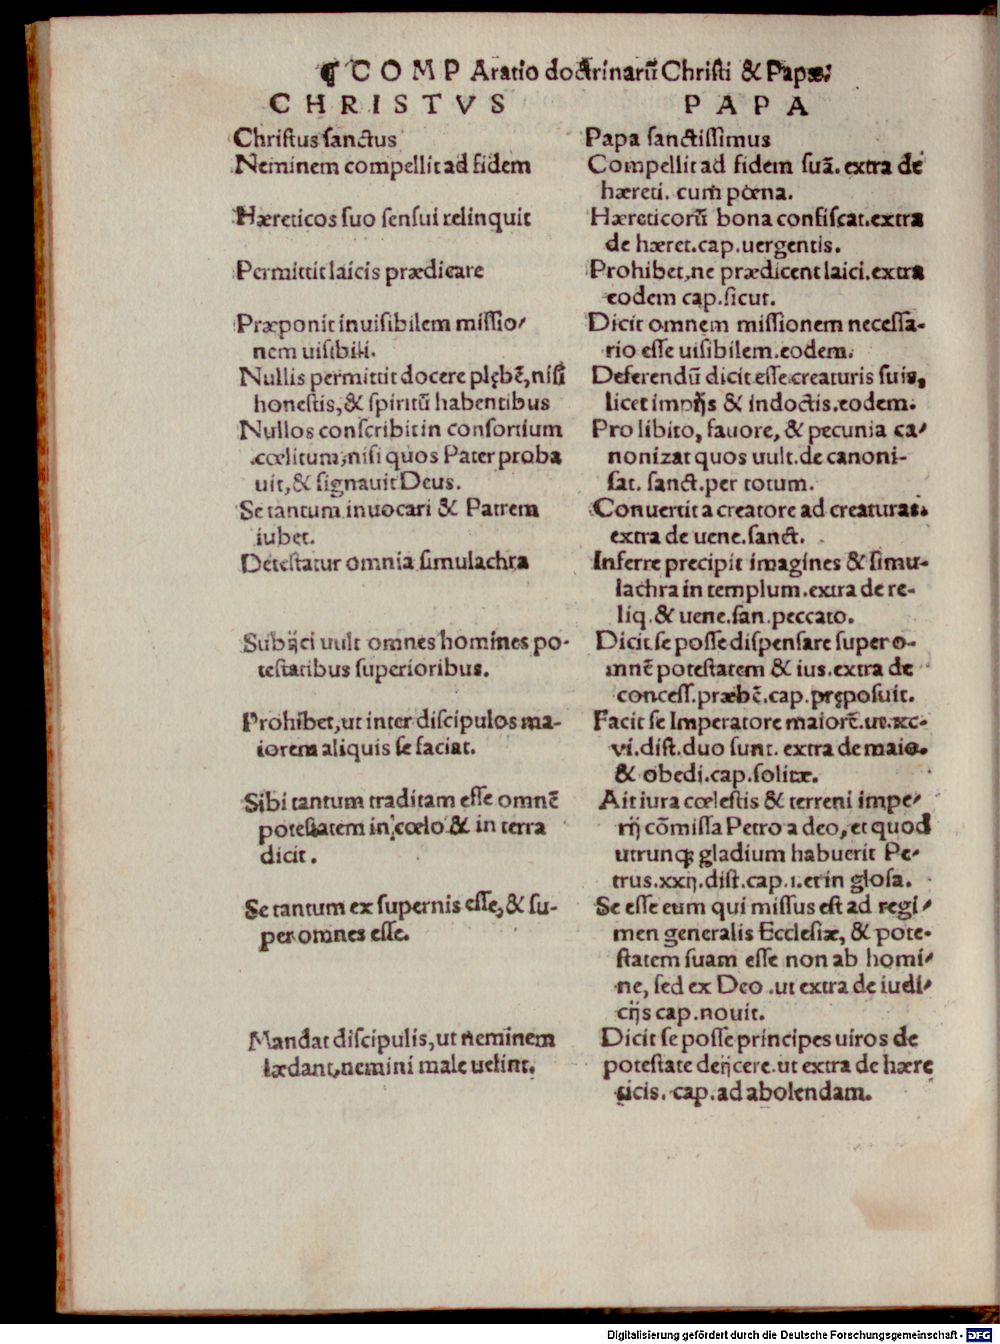 ¶ C O M P Aratio doctrinarū Christi & Papæ.
C H R I S T V S
Christus sanctus
Neminem compellit ad fidem
Hæreticos suo sensui relinquit
Permittit laicis prædicare
Præponit inuisibilem missio/
nem uisibili.
Nullis permittit docere plębē, nisi
honestis, & spiritū habentibus
Nullos conscribit in consortium
cœlitum, nisi quos Pater proba
uit, & signauit Deus.
Se tantum inuocari & Patrem
iubet.
Detestatur omnia simulachra
Subijci uult omnes homines po-
testatibus superioribus.
Prohibet, ut inter discipulos ma-
iorem aliquis se faciat.
Sibi tantum traditam esse omnē
potestatem in cœlo & in terra
dicit.
Se tantum ex supernis esse, & su-
per omnes esse.
Mandat discipulis, ut neminem
lædant, nemini male uelint.
P A P A
Papa sanctissimus
Compellit ad fidem suā. extra de
hæreti. cum̄ pœna.
Hæreticorū bona confiscat. extra
de hæret. cap. uergentis.
Prohibet, ne prædicent laici. extra
eodem cap. sicut.
Dicit omnem missionem necessa-
rio esse uisibilem. eodem.
Deferendū dicit esse creaturis suis,
licet impijs & indoctis. eodem.
Pro libito, fauore, & pecunia ca/
nonizat quos uult. de canoni-
sat. sanct. per totum.
Conuertit a creatore ad creaturas.
extra de uene. sanct.
Inferre precipit imagines & simu-
lachra in templum. extra de re-
liq. & uene. san. peccato.
Dicit se posse dispensare super o-
mnē potestatem & ius. extra de
concess. præbē. cap. pręposuit.
Facit se Imperatore maiorē. ut. xc-
vi. dist. duo sunt. extra de maio.
& obedi. cap. solitæ.
Ait iura cœlestis & terreni impe/
rij cōmissa Petro a deo, et quod
utrunqȝ gladium habuerit Pe/
trus. xxij. dist. cap. 1. et in glosa.
Se esse eum qui missus est ad regi/
men generalis Ecclesiæ, & pote-
statem suam esse non ab homi/
ne, sed ex Deo . ut extra de iudi/
cijs cap. nouit.
Dicit se posse principes uiros de
potestate deijcere. ut extra de hære
ticis. cap. ad abolendam.
Digitalisierung gefördert durch die Deutsche Forschungsgemeinschaft - DFG